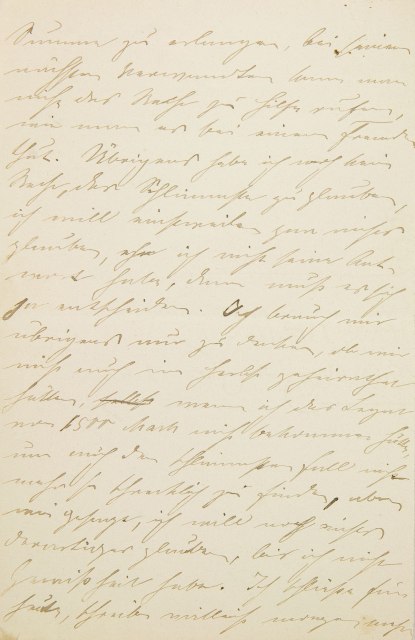 Summe zu erlangen, bei seinen
nächsten Verwandten kann man
nicht das Recht zu Hilfe rufen,
wie man es bei einem Fremden
thut. Übrigens habe ich noch kein
Recht, das Schlimmste zu glauben,
ich will einstweilen gar nichts
glauben, ehe ich nicht seine Ant
wort habe, dann muß es sich
ja entscheiden. Ich brauch mir
übrigens nur zu denken, ob wir
nicht auch im Herbst geheirathet
hätten, wenn ich das Legat
von 1500 Mark nicht bekommen hätte,
um auch den schlimmsten Fall nicht
mehr so schrecklich zu finden, aber
wie gesagt, ich will noch nichts
derartiges glauben, bis ich nicht
Gewißheit habe. Ich schließe für
heute, schreibe vielleicht morgen